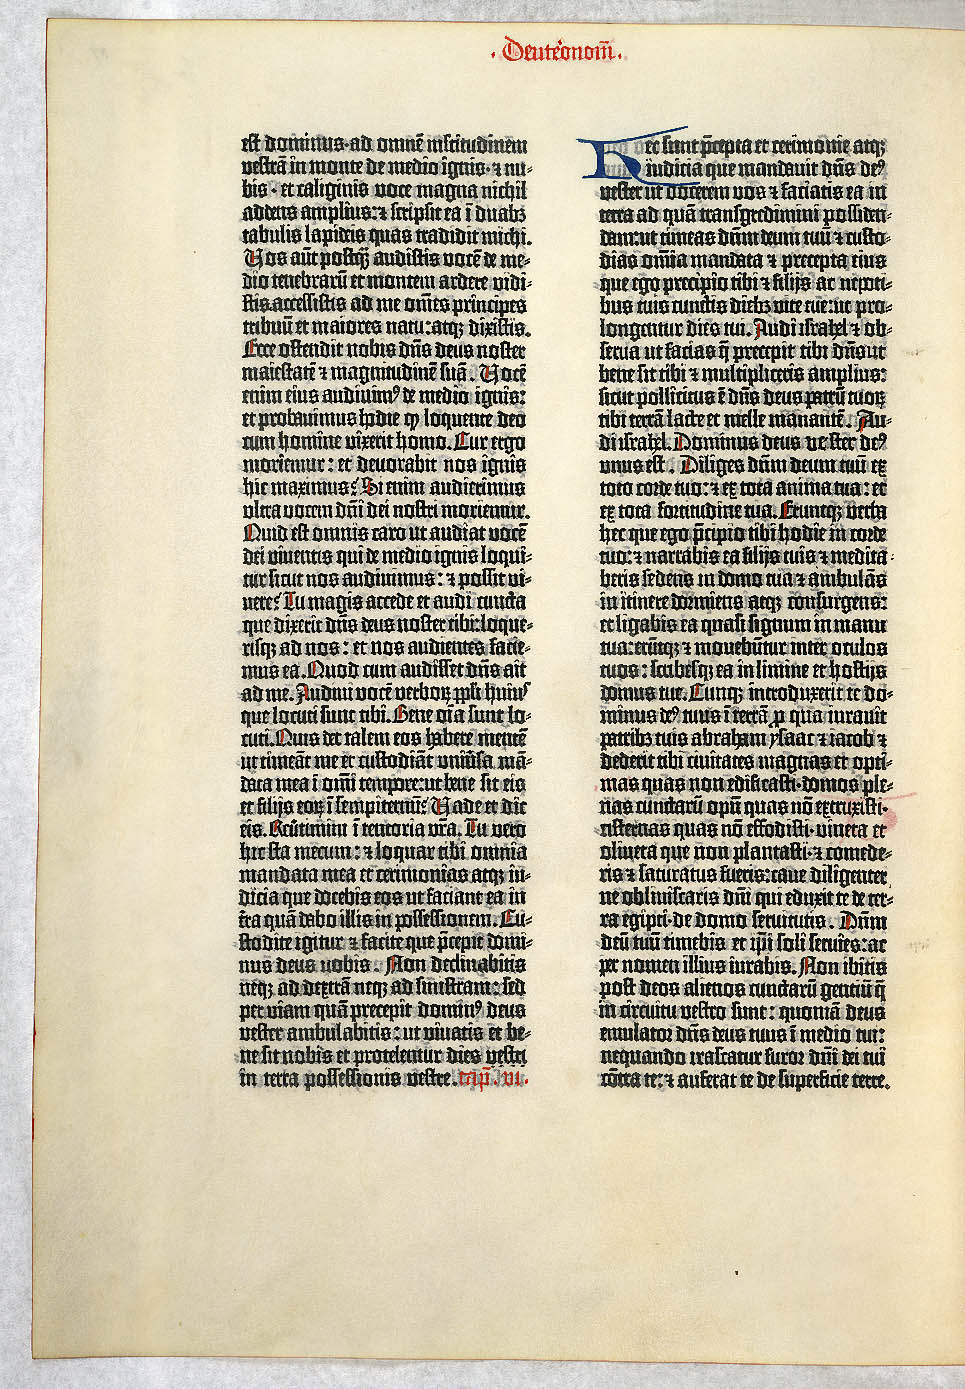 · Deut̄onom̄ ·
est dominus· ad omnē m̄ltitudinem
vestrā in monte de medio ignis· ⁊ nu-
bis · et caliginis voce magna nichil
addens amplius: ⁊ scripsit ea ī duabꝫ
tabulis lapideis quas tradidit michi.
Vos aūt postꝙ̄ audistis vocē de me-
dio tenebrarū et montem ardere vidi-
stis accessistis ad me om̄es principes
tribuū et maiores natu: atqꝫ dixistis.
Ecce ostendit nobis dn̄s deus noster
maiestatē ⁊ magnitudinē suā . Vocē
enim eius audiuimꝰ de medio ignis:
et probauimus hodie ꝙ loquente deo
cum homine vixerit homo. Cur ergo
moriemur : et deuorabit nos ignis
hic maximus? Si enim audierimus
vltra vocem dn̄i dei nostri moriemur.
Quid est omnis caro ut audiat vocē
dei viuentis qui de medio ignis loqui-
tur sicut nos audiuimus: ⁊ possit vi-
uere? Tu magis accede et audi cuncta
que dixerit dn̄s deus noster tibi: loque-
risqꝫ ad nos : et nos audientes facie-
mus ea. Quod cum audisset dn̄s ait
ad me. Audiui vocē verborꝝ ppl̄i huiꝰ
que locuti sunt tibi. Bene oīa sunt lo-
cuti. Quis det talem eos habere mentē
ut timeāt me et custodiāt vniūsa mā-
data mea ī om̄i tempore: ut bene sit eis
et filijs eorꝝ ī sempiternū? Vade et dic
eis. Reūtimini ī tentoria vr̄a. Tu vero
hic sta mecum: ⁊ loquar tibi omnia
mandata mea et cerimonias atqꝫ iu-
dicia que docebis eos ut faciant ea in
tr̄a quā dabo illis in possessionem. Cu-
stodite igitur ⁊ facite que p̄cepit domi-
nus deus vobis . Non declinabitis
neqꝫ ad dextrā neqꝫ ad sinistram: sed
per viam quā precepit dominꝰ deus
vester ambulabitis: ut viuatis et be-
ne sit vobis et protelentur dies vestri
in terra possessionis vestre. cap̄. vi.
Hec sunt p̄cepta et cerimonie atqꝫ
iudicia que mandauit dn̄s deꝰ
vester ut docerem vos ⁊ faciatis ea in
terra ad quā transgredimini possiden-
dam: ut timeas dn̄m deum tuū ⁊ custo-
dias om̄ia mandata ⁊ precepta eius
que ego precipio tibi ⁊ filijs ac nepoti-
bus tuis cunctis diebꝫ vite tue: ut pro-
longentur dies tui. Audi israhel ⁊ ob-
serua ut facias q̄ precepit tibi dn̄s ut
bene sit tibi ⁊ multipliceris amplius:
sicut pollicitus ē dn̄s deus patrū tuorꝝ
tibi terrā lacte et melle manante . Au-
di israhel. Dominus deus vester deꝰ
vnus est . Diliges dn̄m deum tuū ex
toto corde tuo: ⁊ ex tota anima tua: et
ex tota fortitudine tua. Eruntqꝫ verba
hec que ego p̄cipio tibi hodie in corde
tuo: ⁊ narrabis ea filijs tuis ⁊ medita-
beris sedens in domo tua ⁊ ambulās
in itinere dormiens atqꝫ consurgens:
et ligabis ea quasi signum in manu
tua: erūtqꝫ ⁊ mouebūtur inter oculos
tuos : scribesqꝫ ea in limine et hostijs
domus tue. Cumqꝫ introduxerit te do-
minus deꝰ tuus ī terrā p̱ qua iurauit
patribꝫ tuis abraham ysaac ⁊ iacob ⁊
dederit tibi ciuitates magnas et opti-
mas quas non edificasti· domos ple-
nas cunctarū opū quas nō extruxisti·
cisternas quas nō effodisti· vineta et
oliueta que non plantasti· ⁊ comede-
ris ⁊ saturatus fueris: caue diligenter
ne obliuiscaris dn̄i qui eduxit te de ter-
ra egipti· de domo seruitutis . Dn̄m
deū tuū timebis et ip̄i soli seruies: ac
per nomen illius iurabis. Non ibitis
post deos alienos cunctarū gentiū q̄
in circuitu vestro sunt : quoniā deus
emulator dn̄s deus tuus ī medio tui:
nequando irascatur furor dn̄i dei tui
cōtra te: ⁊ auferat te de superficie terre.